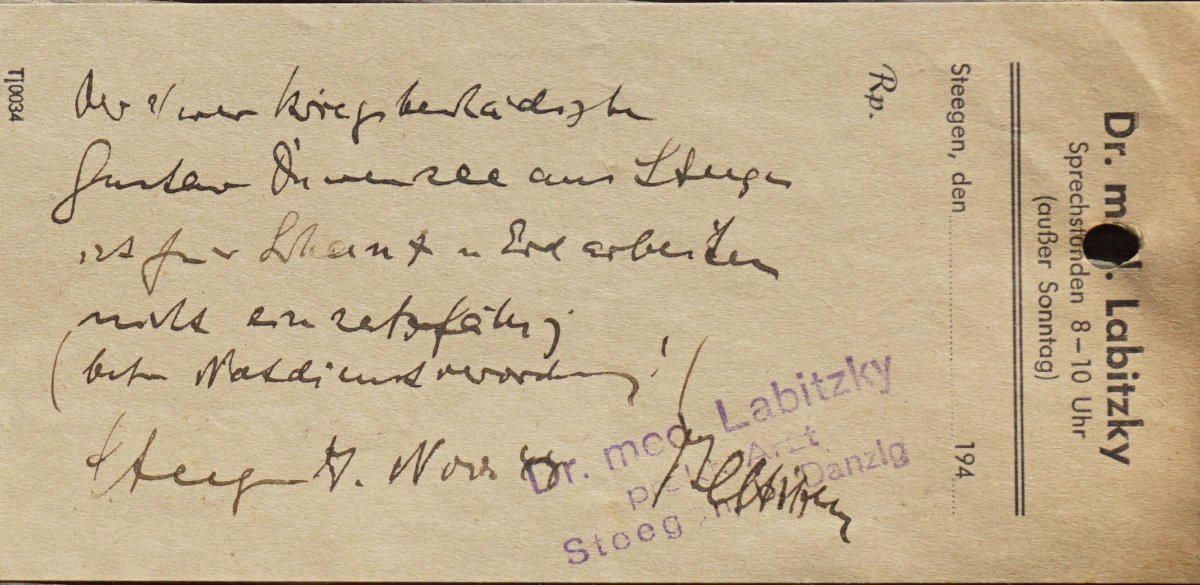 Dr. med. Labitzky
Sprechstunden 8–10 Uhr
(außer Sonntag)
Steegen, den 194
Rp.
Der schwer Kriegsbeschädigte
Gustav aus Steegen
ist für Schanz u Erdarbeiten
nicht einsatzfähig
(betr Notdienstverordnung!)
Steegen Nov
Dr. med. Labitzky
prakt. Arzt
Steegen Danzig
Tj0034